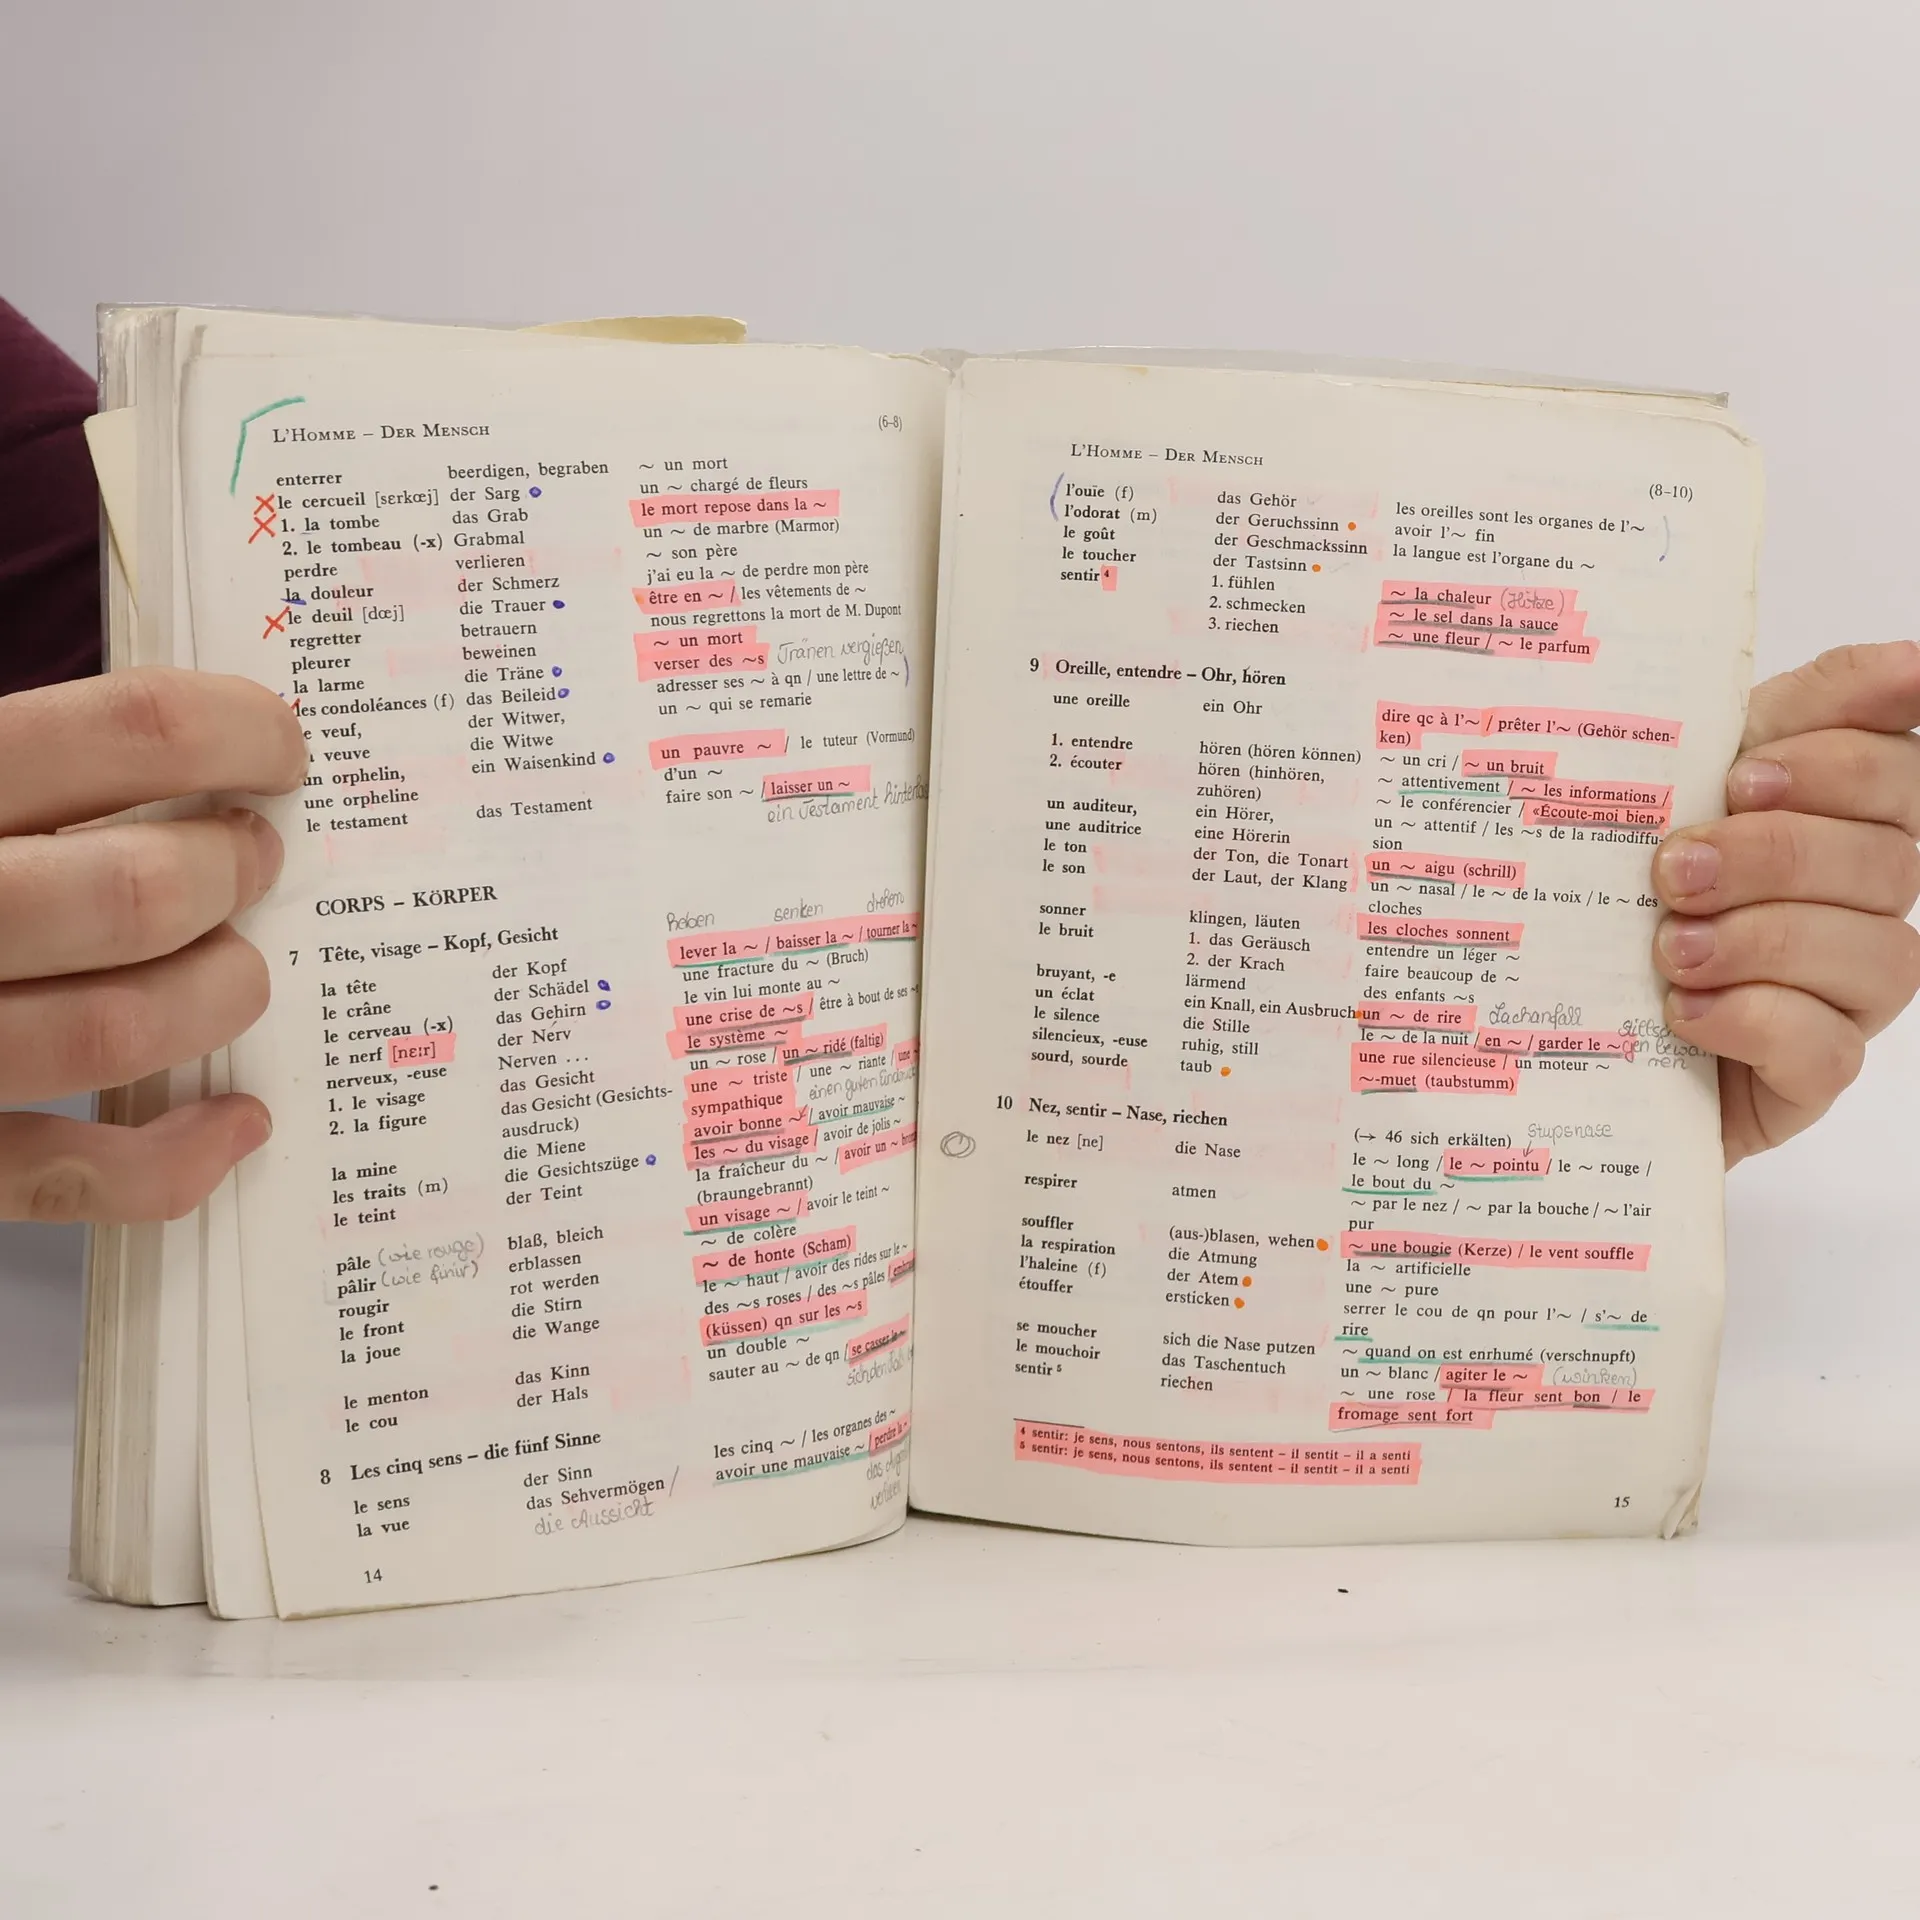 L'HOMME – DER MENSCH (6–8)
enterrer beerdigen, begraben ~ un mort
le cercueil [sɛrkœj] der Sarg un ~ chargé de fleurs
1. la tombe das Grab le mort repose dans la ~
2. le tombeau (-x) Grabmal un ~ de marbre (Marmor)
perdre verlieren ~ son père
la douleur der Schmerz j'ai eu la ~ de perdre mon père
le deuil [dœj] die Trauer être en ~ / les vêtements de ~
regretter betrauern nous regrettons la mort de M. Dupont
pleurer beweinen ~ un mort
la larme die Träne verser des ~s Tränen vergießen
les condoléances (f) das Beileid adresser ses ~ à qn / une lettre de ~
e veuf, der Witwer, un ~ qui se remarie
veuve die Witwe
un orphelin, ein Waisenkind un pauvre ~ / le tuteur (Vormund)
une orpheline d'un ~
le testament das Testament faire son ~ / laisser un ~
ein Testament
CORPS – KÖRPER
heben senken drehen
7 Tête, visage – Kopf, Gesicht
la tête der Kopf lever la ~ / baisser la ~ / tourner la ~
le crâne der Schädel une fracture du ~ (Bruch)
le cerveau (-x) das Gehirn le vin lui monte au ~
le nerf [nɛːr] der Nerv une crise de ~s / être à bout de ses ~
nerveux, -euse Nerven ... le système ~
1. le visage das Gesicht un ~ rose / un ~ ridé (faltig)
2. la figure das Gesicht (Gesichts- une ~ triste / une ~ riante / une
ausdruck) sympathique einen guten
la mine die Miene avoir bonne ~ / avoir mauvaise ~
les traits (m) die Gesichtszüge les ~ du visage / avoir de jolis ~
le teint der Teint la fraîcheur du ~ / avoir un ~
(braungebrannt)
pâle (wie rouge) blaß, bleich un visage ~ / avoir le teint ~
pâlir (wie finir) erblassen ~ de colère
rougir rot werden ~ de honte (Scham)
le front die Stirn le ~ haut / avoir des rides sur le ~
la joue die Wange des ~s roses / des ~s pâles /
(küssen) qn sur les ~s
le menton das Kinn un double ~
le cou der Hals sauter au ~ de qn / se casser le ~
8 Les cinq sens – die fünf Sinne
le sens der Sinn les cinq ~ / les organes des ~
la vue das Sehvermögen / avoir une mauvaise ~ / perdre la ~
die Aussicht
14
L'HOMME – DER MENSCH (8–10)
l'ouïe (f) das Gehör les oreilles sont les organes de l'~
l'odorat (m) der Geruchssinn avoir l'~ fin
le goût der Geschmackssinn la langue est l'organe du ~
le toucher der Tastsinn
sentir ⁴ 1. fühlen ~ la chaleur (Hitze)
2. schmecken ~ le sel dans la sauce
3. riechen ~ une fleur / ~ le parfum
9 Oreille, entendre – Ohr, hören
une oreille ein Ohr dire qc à l'~ / prêter l'~ (Gehör schen-
ken)
1. entendre hören (hören können) ~ un cri / ~ un bruit
2. écouter hören (hinhören, ~ attentivement / ~ les informations /
zuhören) ~ le conférencier / «Écoute-moi bien.»
un auditeur, ein Hörer, un ~ attentif / les ~s de la radiodiffu-
une auditrice eine Hörerin sion
le ton der Ton, die Tonart un ~ aigu (schrill)
le son der Laut, der Klang un ~ nasal / le ~ de la voix / le ~ des
cloches
sonner klingen, läuten les cloches sonnent
le bruit 1. das Geräusch entendre un léger ~
2. der Krach faire beaucoup de ~
bruyant, -e lärmend des enfants ~s
un éclat ein Knall, ein Ausbruch un ~ de rire Lachanfall
le silence die Stille le ~ de la nuit / en ~ / garder le ~
silencieux, -euse ruhig, still une rue silencieuse / un moteur ~
sourd, sourde taub ~-muet (taubstumm)
10 Nez, sentir – Nase, riechen
(→ 46 sich erkälten) Stupsnase
le nez [ne] die Nase le ~ long / le ~ pointu / le ~ rouge /
le bout du ~
respirer atmen ~ par le nez / ~ par la bouche / ~ l'air
pur
souffler (aus-)blasen, wehen ~ une bougie (Kerze) / le vent souffle
la respiration die Atmung la ~ artificielle
l'haleine (f) der Atem une ~ pure
étouffer ersticken serrer le cou de qn pour l'~ / s'~ de
rire
se moucher sich die Nase putzen ~ quand on est enrhumé (verschnupft)
le mouchoir das Taschentuch un ~ blanc / agiter le ~ (winken)
sentir ⁵ riechen ~ une rose / la fleur sent bon / le
fromage sent fort
⁴ sentir: je sens, nous sentons, ils sentent – il sentit – il a senti
⁵ sentir: je sens, nous sentons, ils sentent – il sentit – il a senti
15